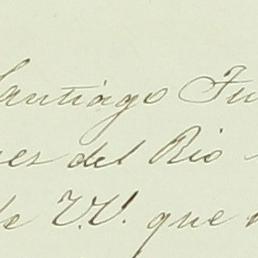 Santiago Fu
es del Rio
de V.V. que